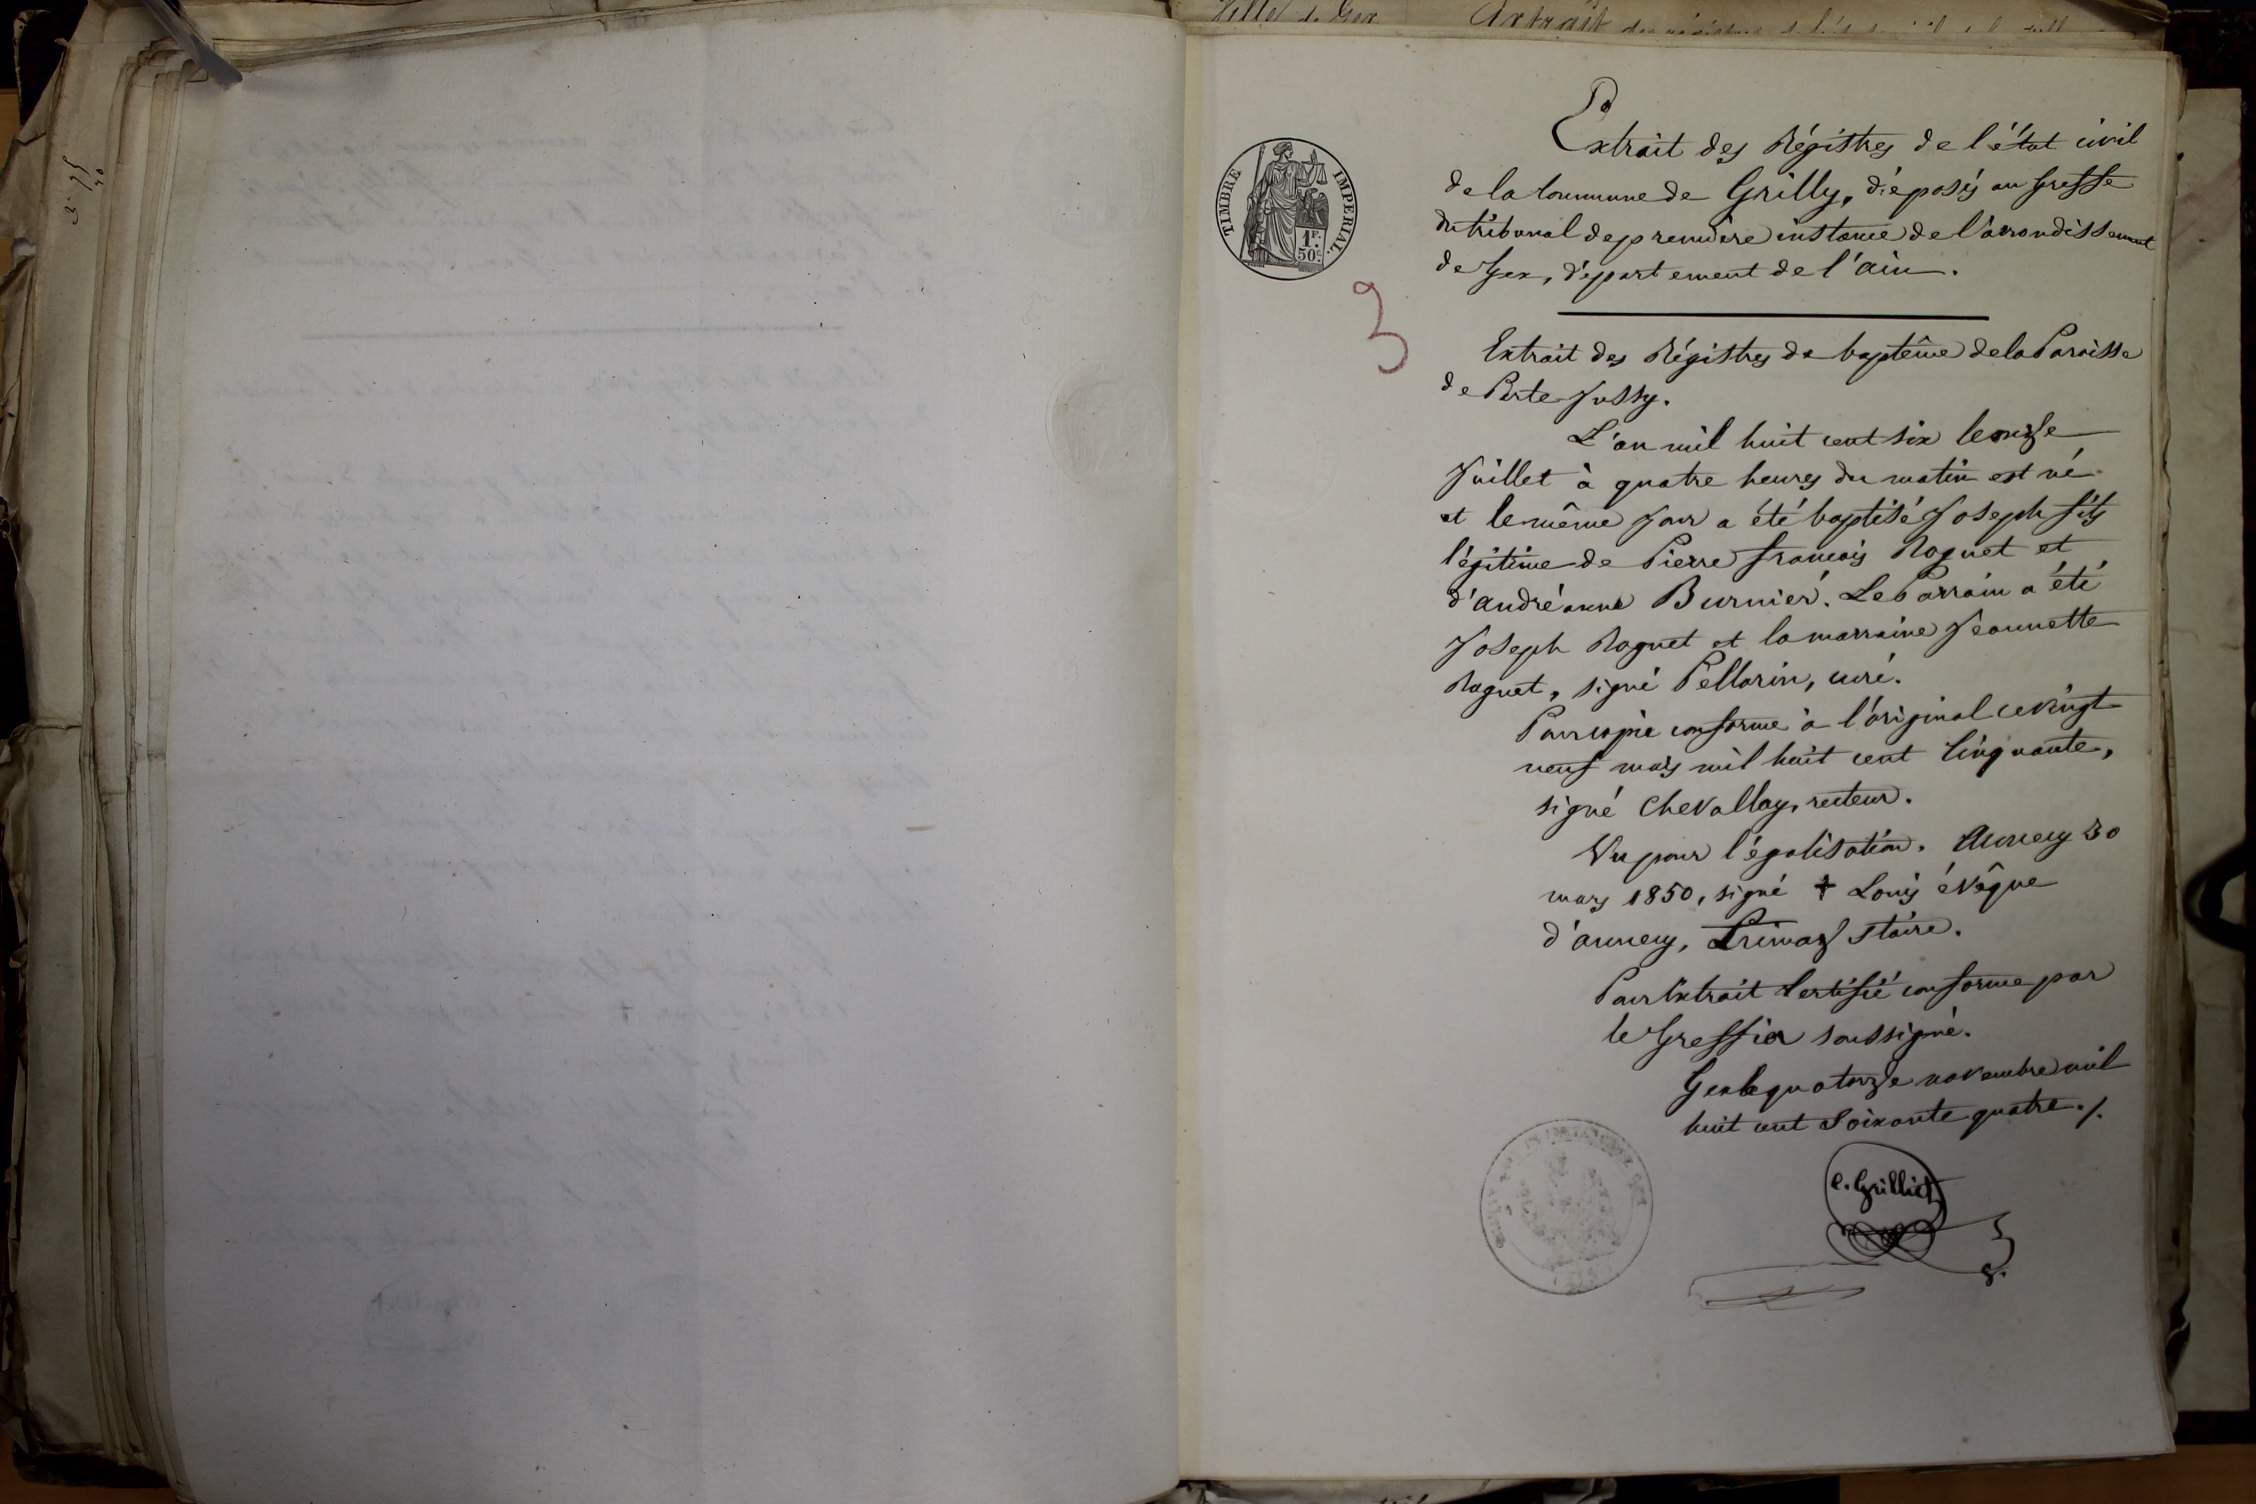 Ville de Gex Extrait des
TIMBRE IMPERIAL
1F.
50c.
3
Extrait des Régistres de l'état civil
de la Commune de Grilly, déposés au Greffe
du tribunal de première instance de l'arrondissement
de Gex, département de l'ain.
Extrait des Régistres de baptême de la Paroisse
de Perte Jussy.
L'an mil huit cent six le onze
Juillet à quatre heures du matin est né
et le même jour a été baptisé Joseph fils
légitime de Pierre françois Roguet et
d'andréanne Burnier. Le Parrain a été
Joseph Roguet et la marraine Jeannette
Roguet, signé Pellarin, curé.
Pour copie conforme à l'original ce vingt
neuf mars mil huit cent Cinquante,
signé Chevallay, recteur.
Vu pour légalisation. Annecy 30
mars 1850, signé + Louis évêque
d'annecy, Staire.
Pour Extrait Certifié conforme par
le Greffier soussigné.
Gex le quatorze novembre mil
huit cent Soixante quatre ./.
C. Grilliet